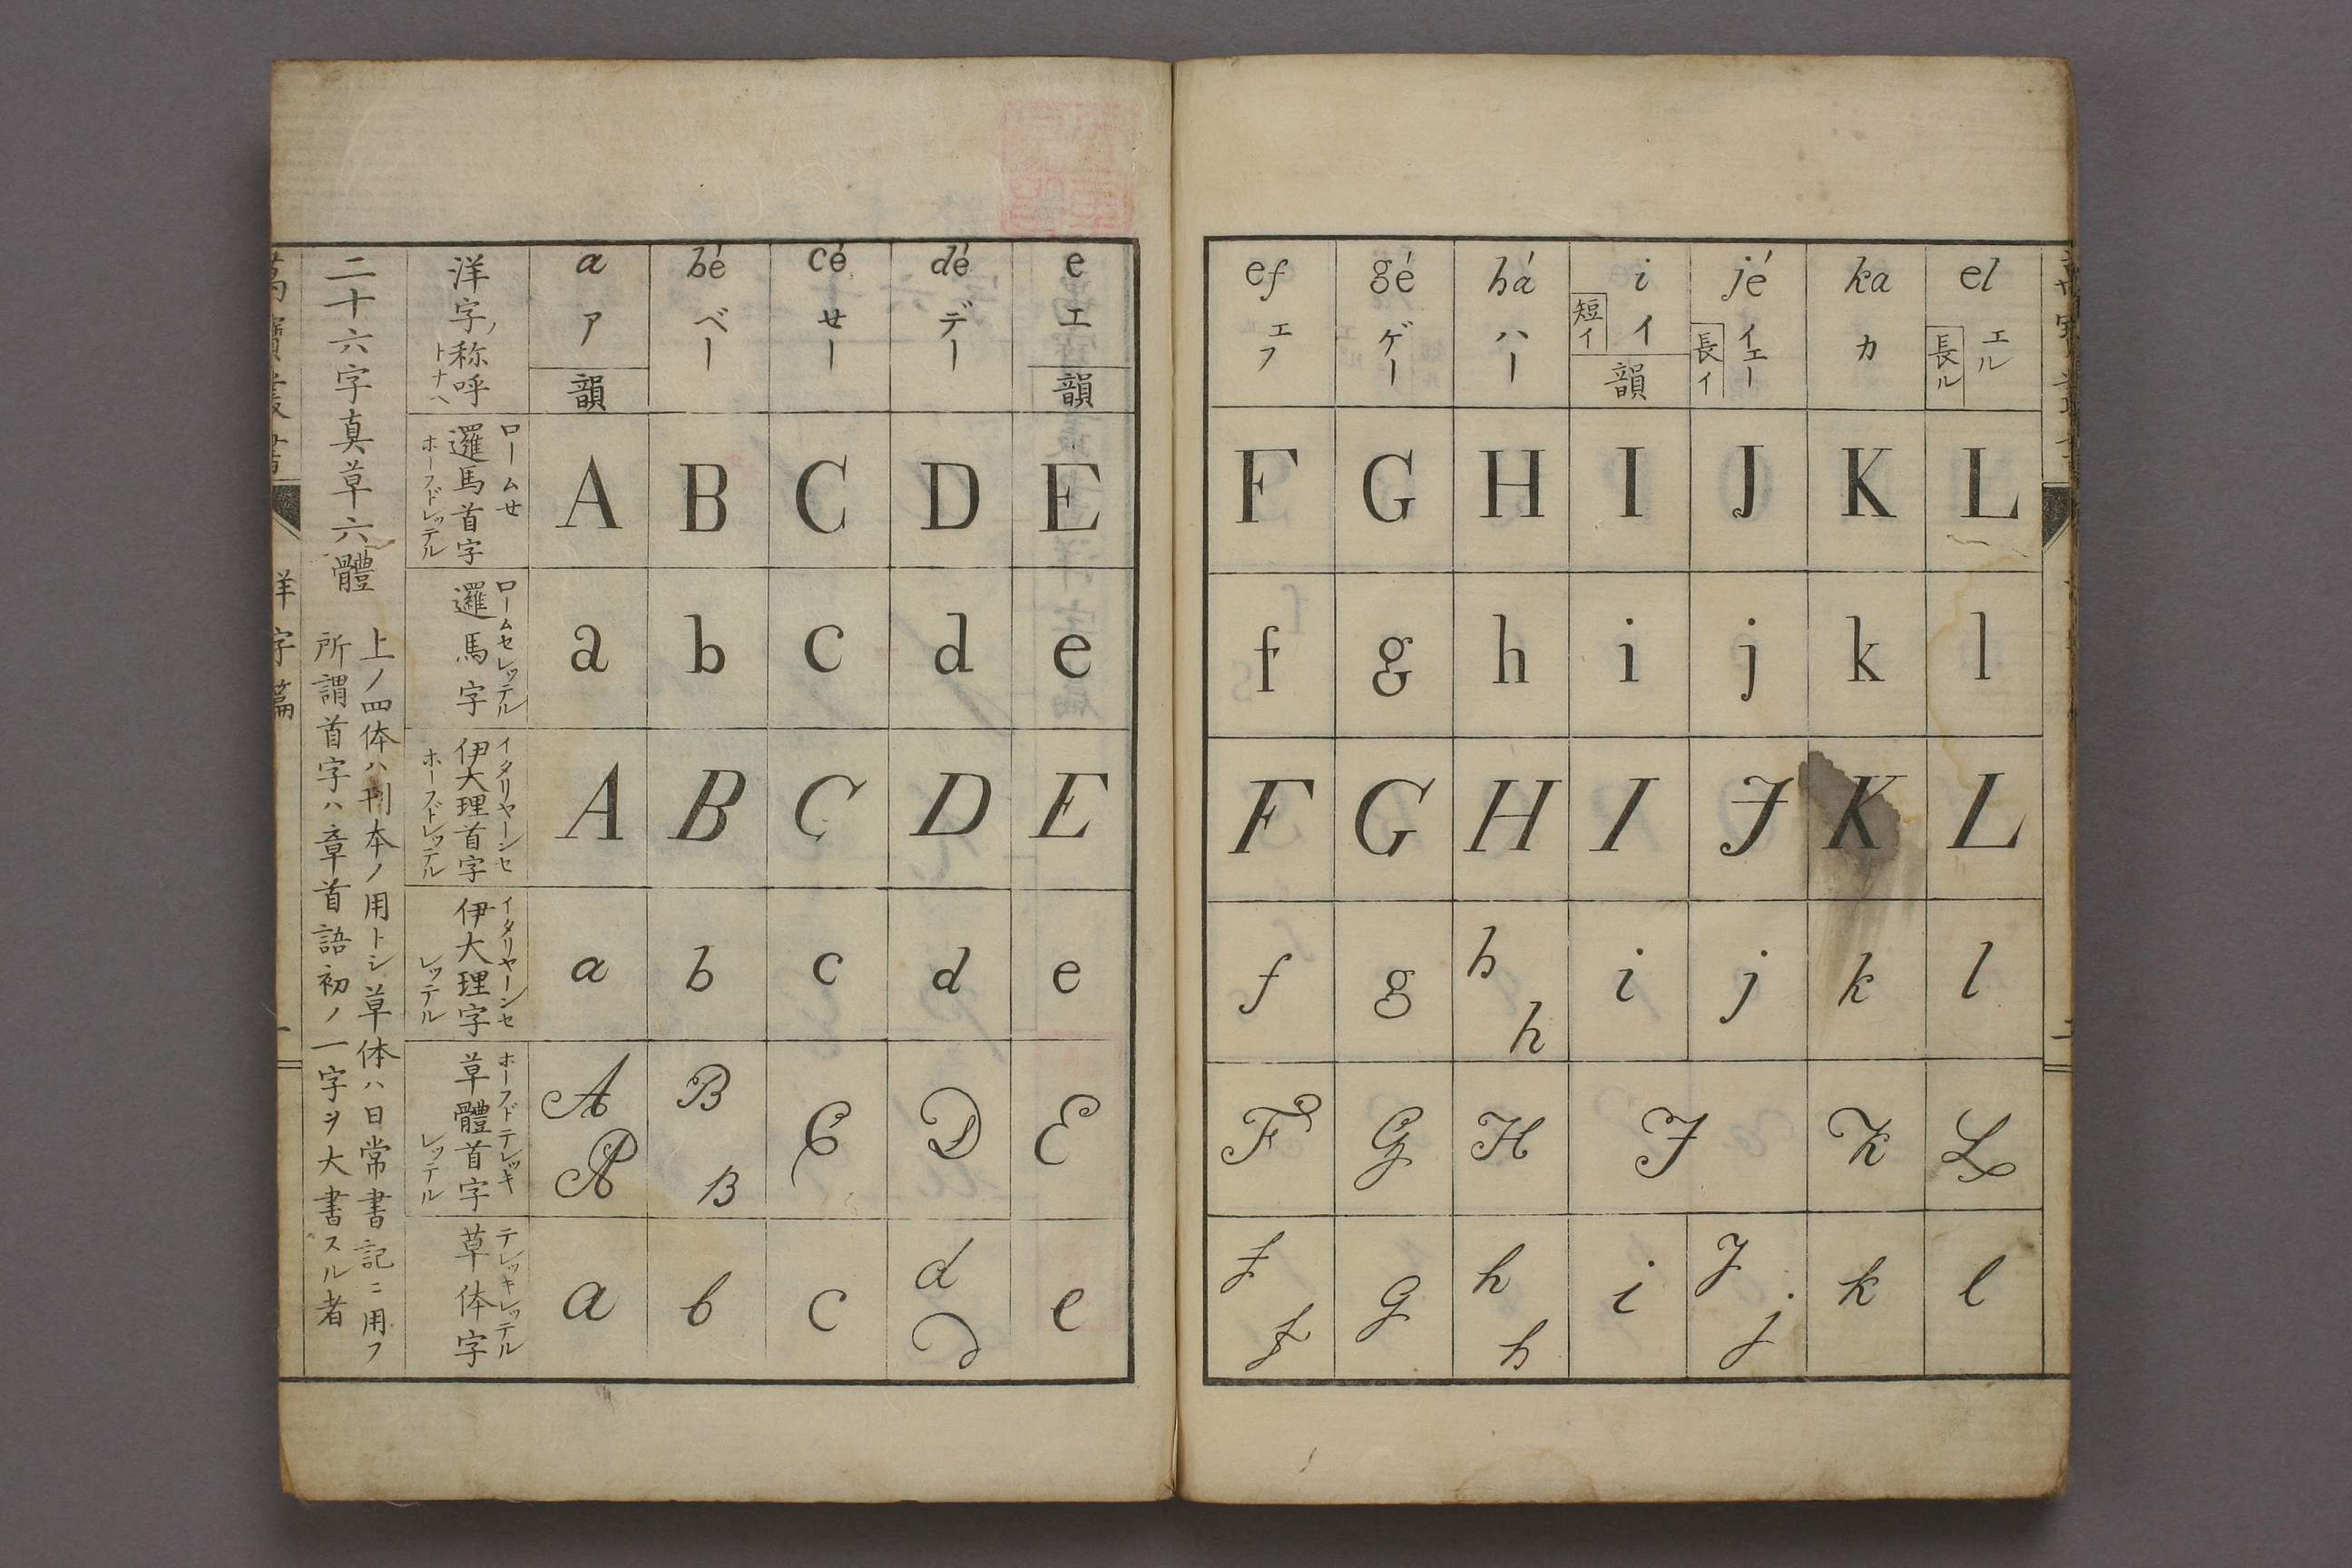 二十六字真草六體
上ノ四体ハ刊本ノ用トシ草体ハ日常書記ニ用フ
所謂首字ハ章首語初ノ一字ヲ大書スル者
洋字ノ称呼 トナヘ
a bé cé dé e
ア ベー せー デー エ
韻 韻
ロームせ
邏馬首字
ホーフドレッテル
A B C D E
ロームセレッテル
邏馬字
a b c d e
イタリヤーンセ
伊大理首字
ホーフドレッテル
A B C D E
イタリヤーンセ
伊大理字
レッテル
a b c d e
ホーフドテレッキ
草體首字
レッテル
A B C D E
A B
テレッキレッテル
草体字
a b c d e
d
洋字篇
ef gé há i jé ka el
エフ ゲー ハー イ イエー カ エル
短イ 長イ 長ル
韻
F G H I J K L
f g h i j k l
F G H I J K L
f g h i j k l
h
F G H J K L
f g h i j k l
f h j
二